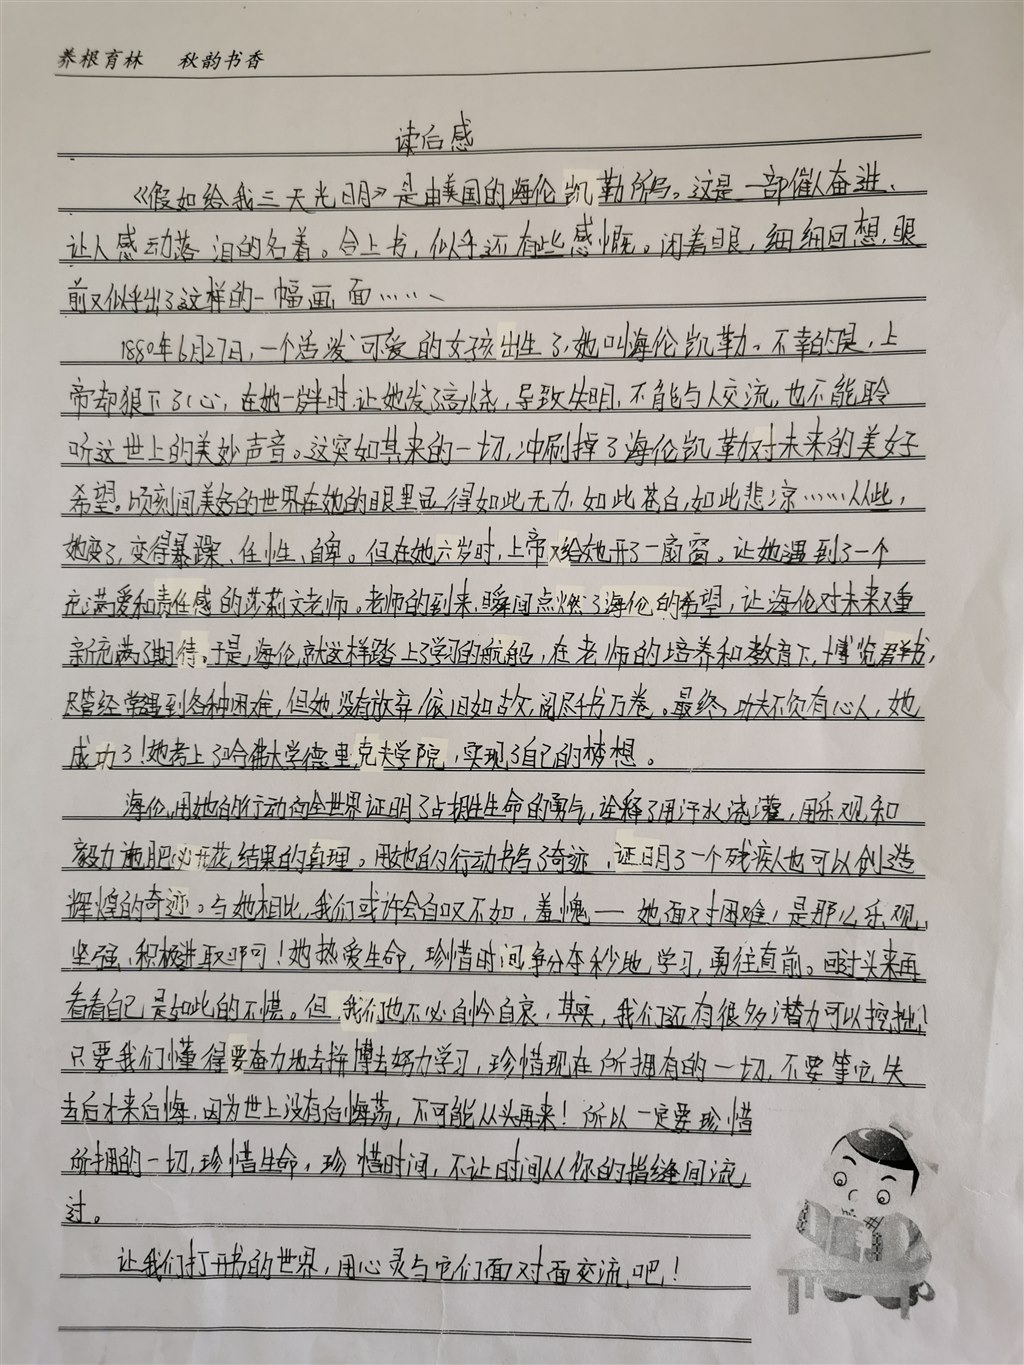 养根育林 秋韵书香
读后感
《假如给我三天光明》是由美国的海伦凯勒所写。这是一部催人奋进、
让人感动落泪的名着。合上书，似乎还有些感慨。闭着眼，细细回想，眼
前又似乎出了这样的一幅画面……
1880年6月27日，一个活泼可爱的女孩出生了，她叫海伦凯勒。不幸的是，上
帝却狠下了心，在她一岁半时，让她发了高烧，导致失明，不能与人交流，也不能聆
听这世上的美妙声音。这突如其来的一切，冲刷掉了海伦凯勒对未来的美好
希望。顷刻间美好的世界在她的眼里显得如此无力，如此苍白，如此悲凉……从些，
她变了，变得暴躁、任性、自卑。但在她六岁时，上帝又给她开了一扇窗。让她遇到了一个
充满爱和责任感的莎莉文老师。老师的到来，瞬间点燃了海伦的希望，让海伦对未来又重
新充满了期待。于是，海伦就这样踏上了学习的航船，在老师的培养和教育下，博览群书，
尽管经常遇到各种困难，但她没有放弃，依旧如故，阅尽千书万卷。最终，功夫不负有心人，她
成功了！她考上了哈佛大学德里克夫学院，实现了自己的梦想。
海伦，用她的行动向全世界证明了占拥生生命的勇气，诠释了用汗水浇灌，用乐观和
毅力施肥必开花结果的真理。用她的行动书写了奇迹，证明了一个残疾人也可以创造
辉煌的奇迹。与她相比，我们或许会自叹不如，羞愧——她面对困难，是那么乐观、
坚强、积极进取耶可！她热爱生命，珍惜时间，争分夺秒地学习，勇往直前。回过头来再
看看自己是如此的不堪。但，我们也不必自怜自哀，其实，我们还有很多潜力可以挖拙，
只要我们懂得要奋力地去拼博去努力学习，珍惜现在所拥有的一切，不要等它失
去后才来后悔，因为世上没有后悔荡，不可能从头再来！所以一定要珍惜
所拥的一切，珍惜生命，珍惜时间，不让时间从你的指缝间流
过。
让我们打开书的世界，用心灵与它们面对面交流吧！